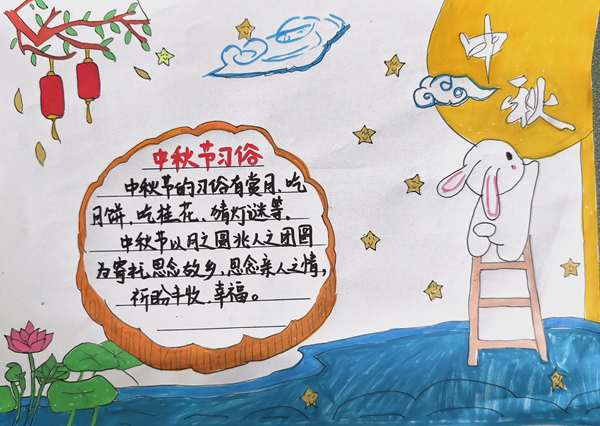 中秋
中秋节习俗
中秋节的习俗有赏月、吃
月饼、吃桂花、猜灯谜等。
中秋节以月之圆兆人之团圆
为寄托思念故乡、思念亲人之情,
祈盼丰收、幸福。